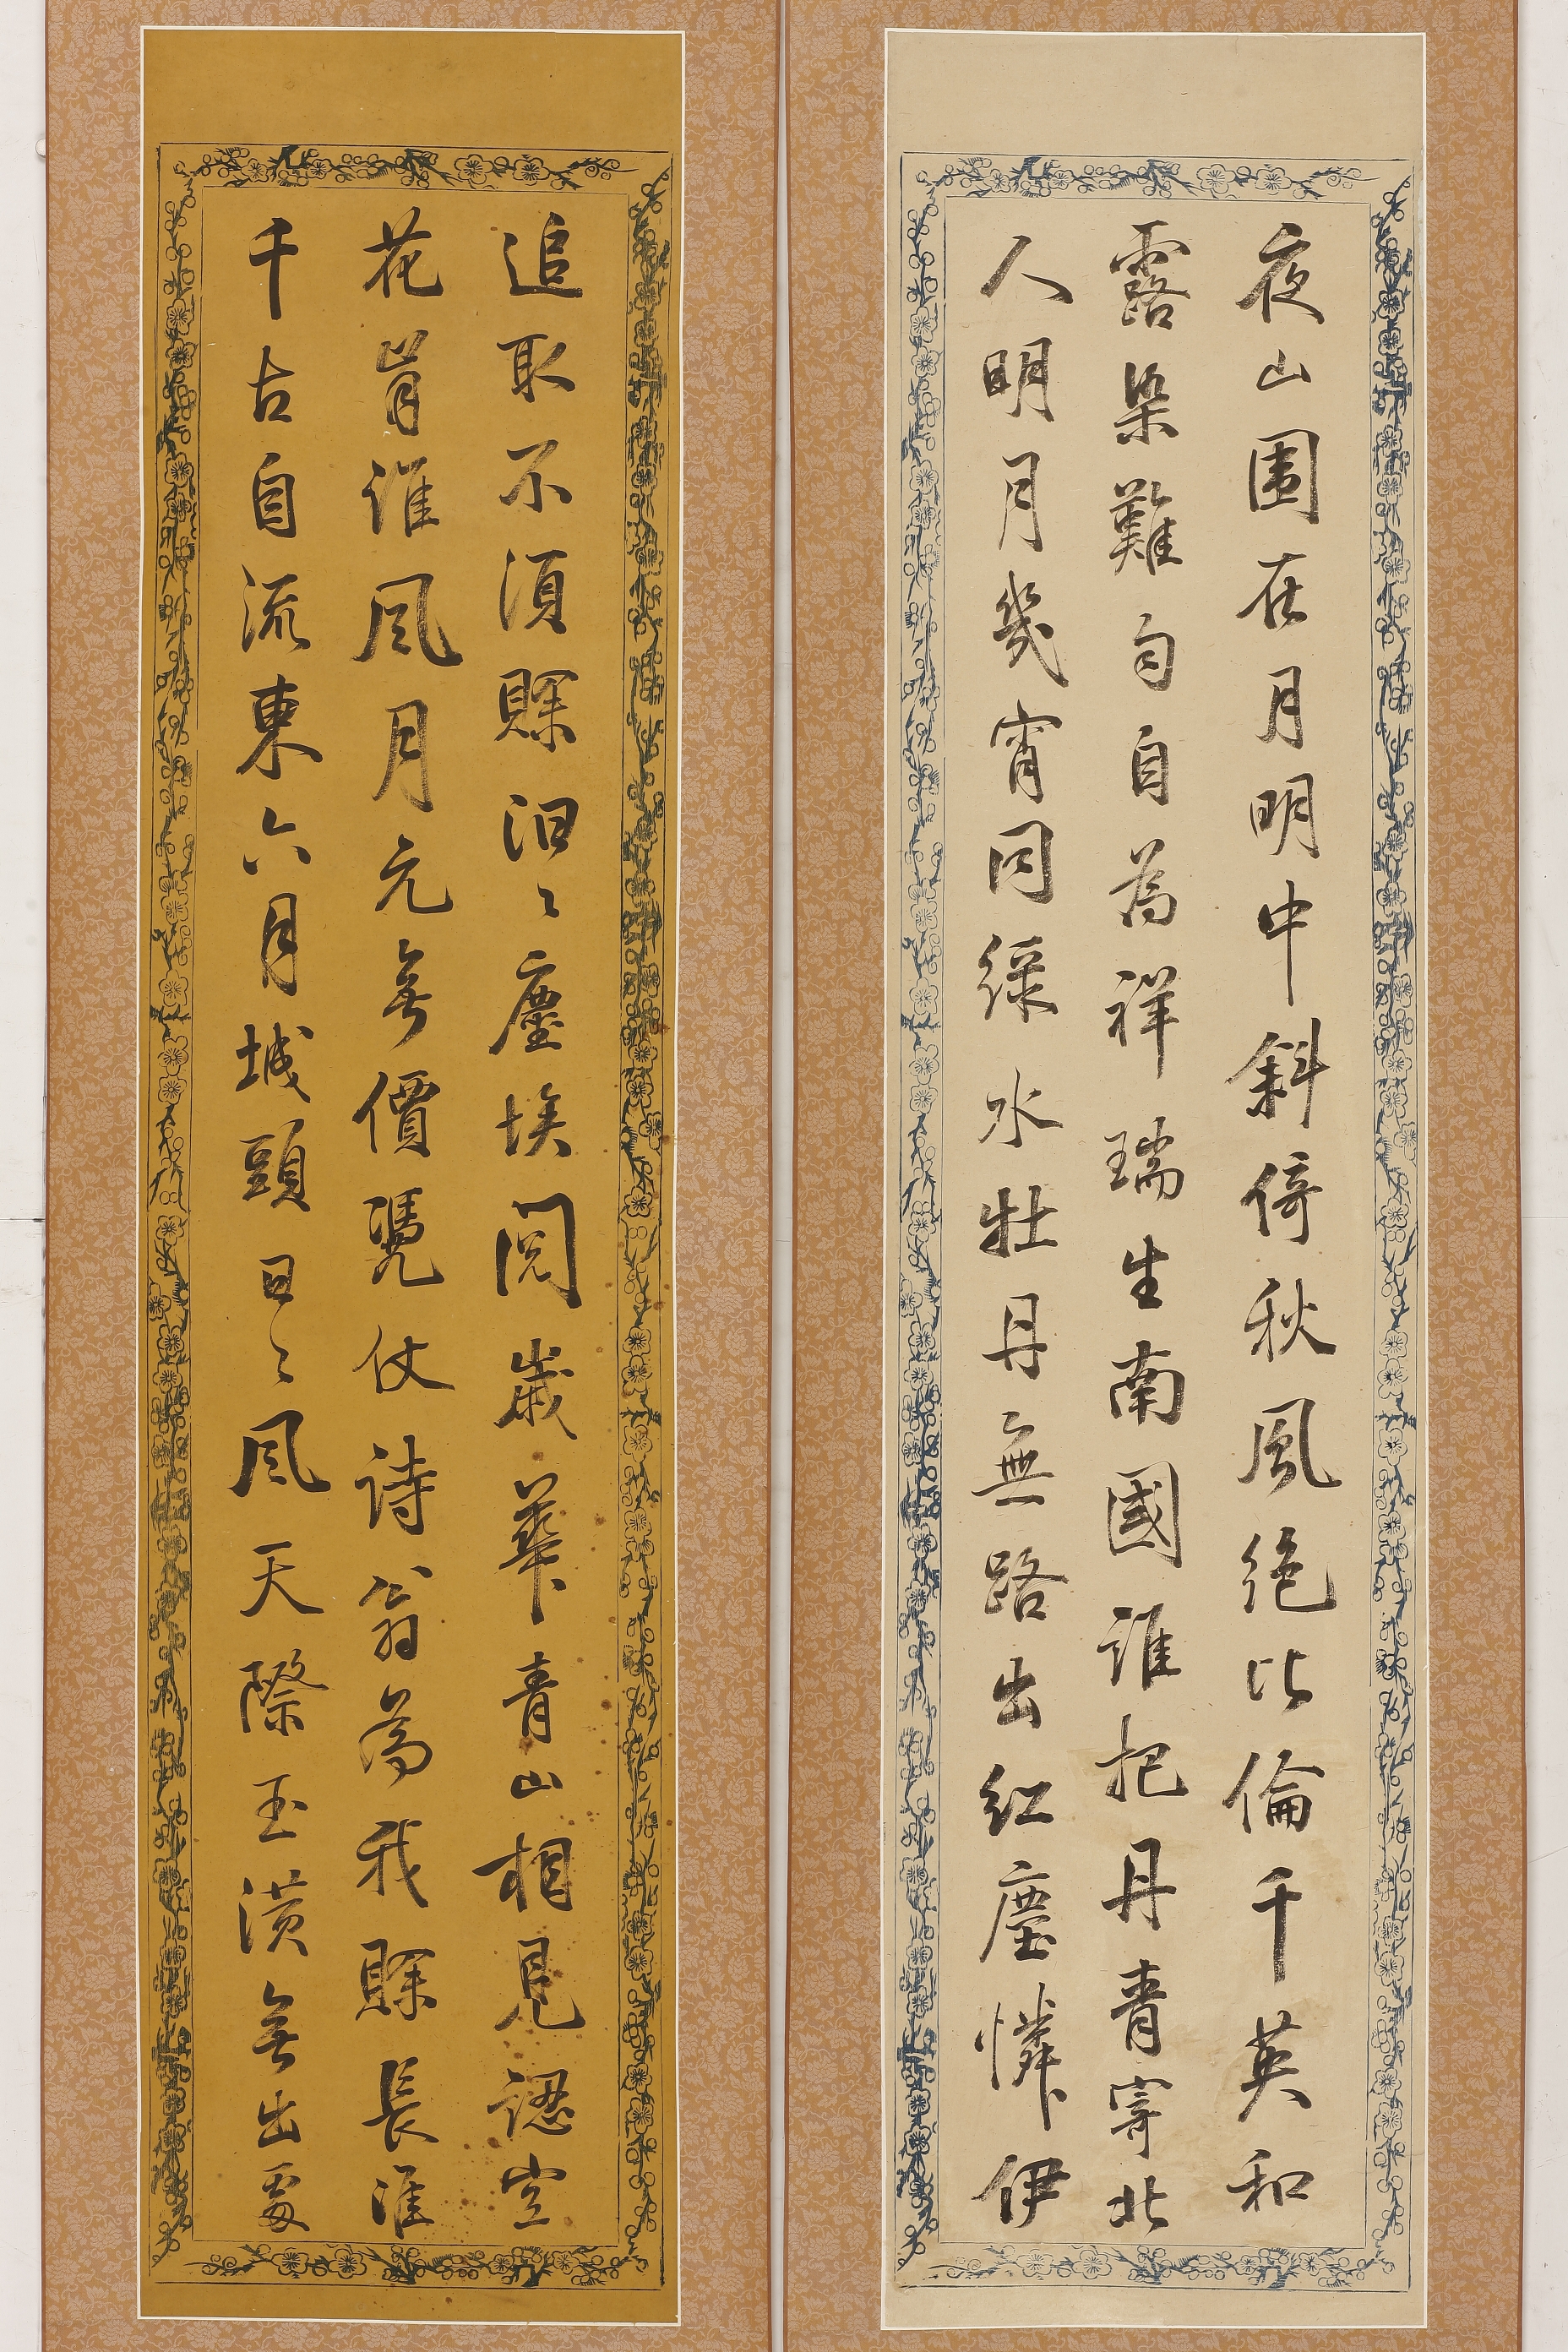 夜山圍在月明中斜倚秋風絕比倫千英和
露染難勻自為祥瑞生南國誰把丹青寄北
人明月幾宵同綠水牡丹無路出紅塵憐伊
追取不須賖汩〻塵埃閱歲華青山相見認空
花肯誰風月元無價凴仗詩翁為我賖長淮
千古自流東六月城頭日〻風天際玉潢無出處